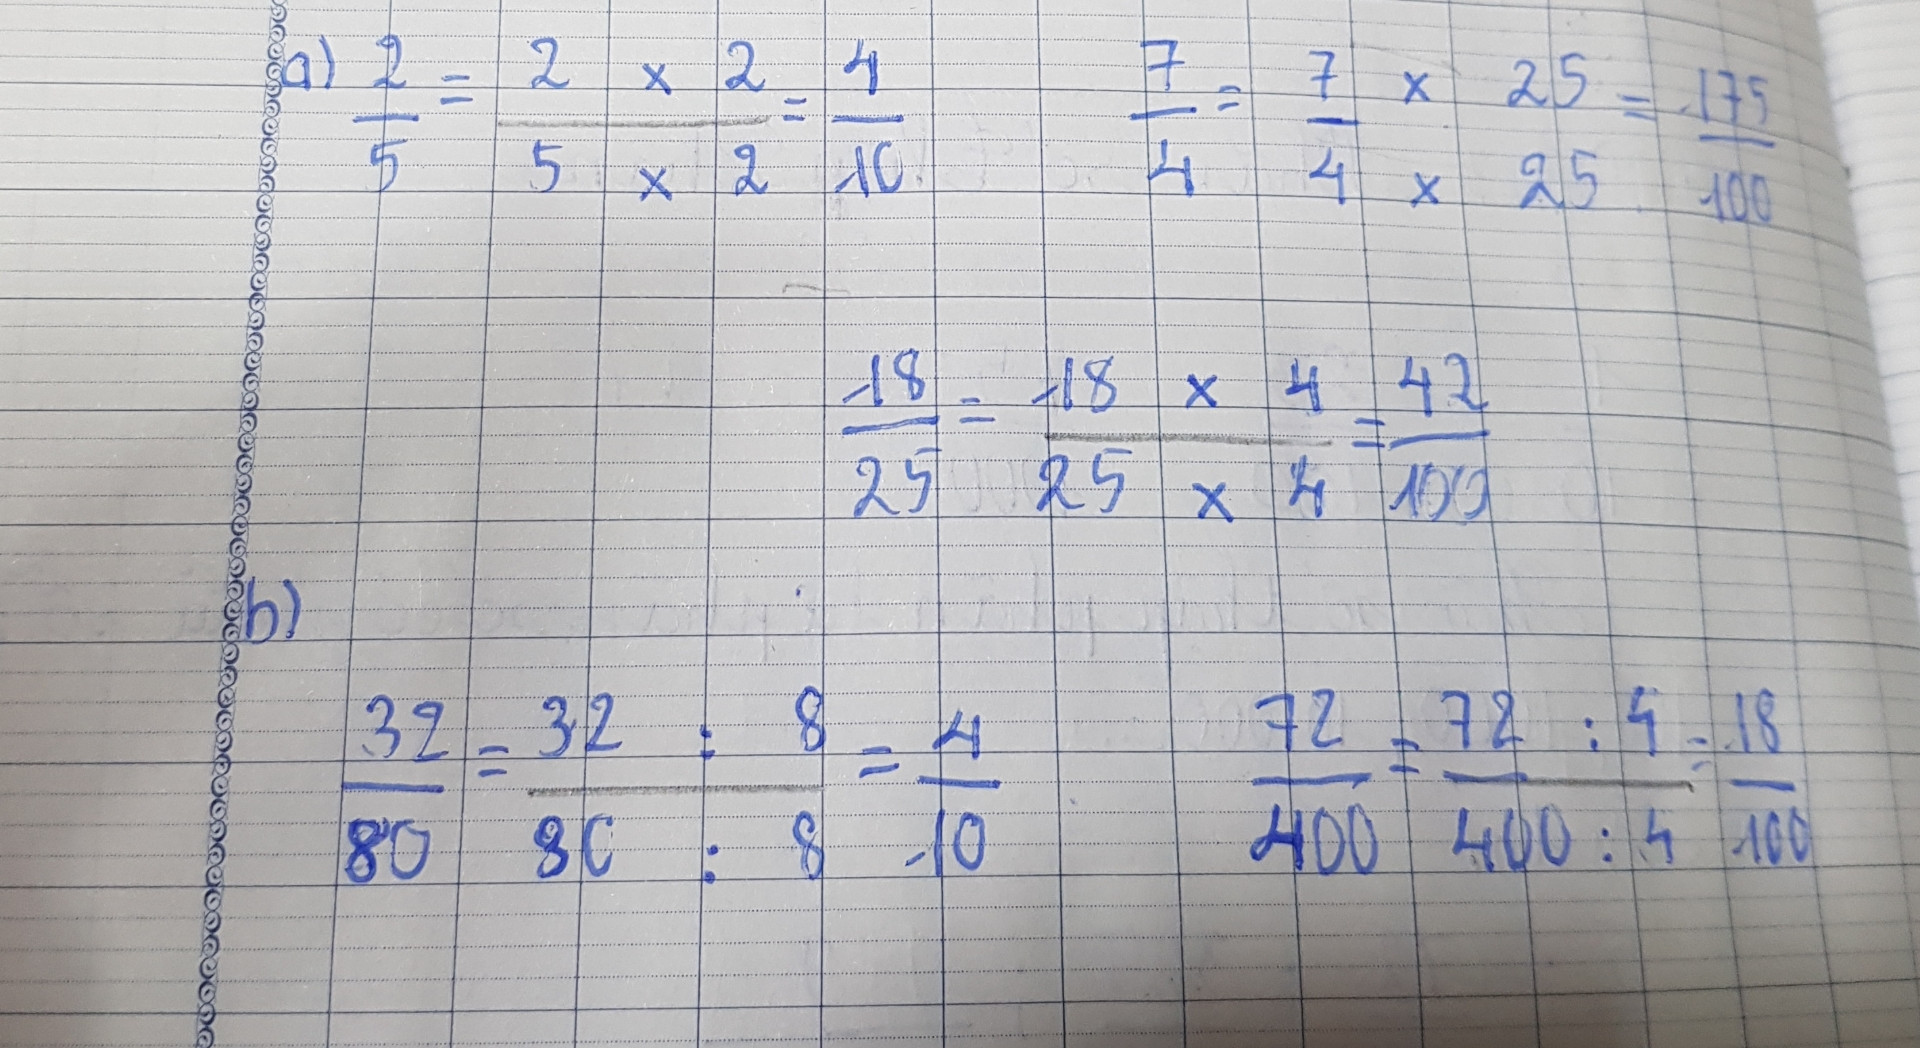 a) 2/5 = 2 x 2 / 5 x 2 = 4/10 7/4 = 7/4 x 25 / x 25 = 175/100
18/25 = 18 x 4 / 25 x 4 = 42/100
b)
32/80 = 32 : 8 / 80 : 8 = 4/10 72/400 = 72 : 4 / 400 : 4 = 18/100